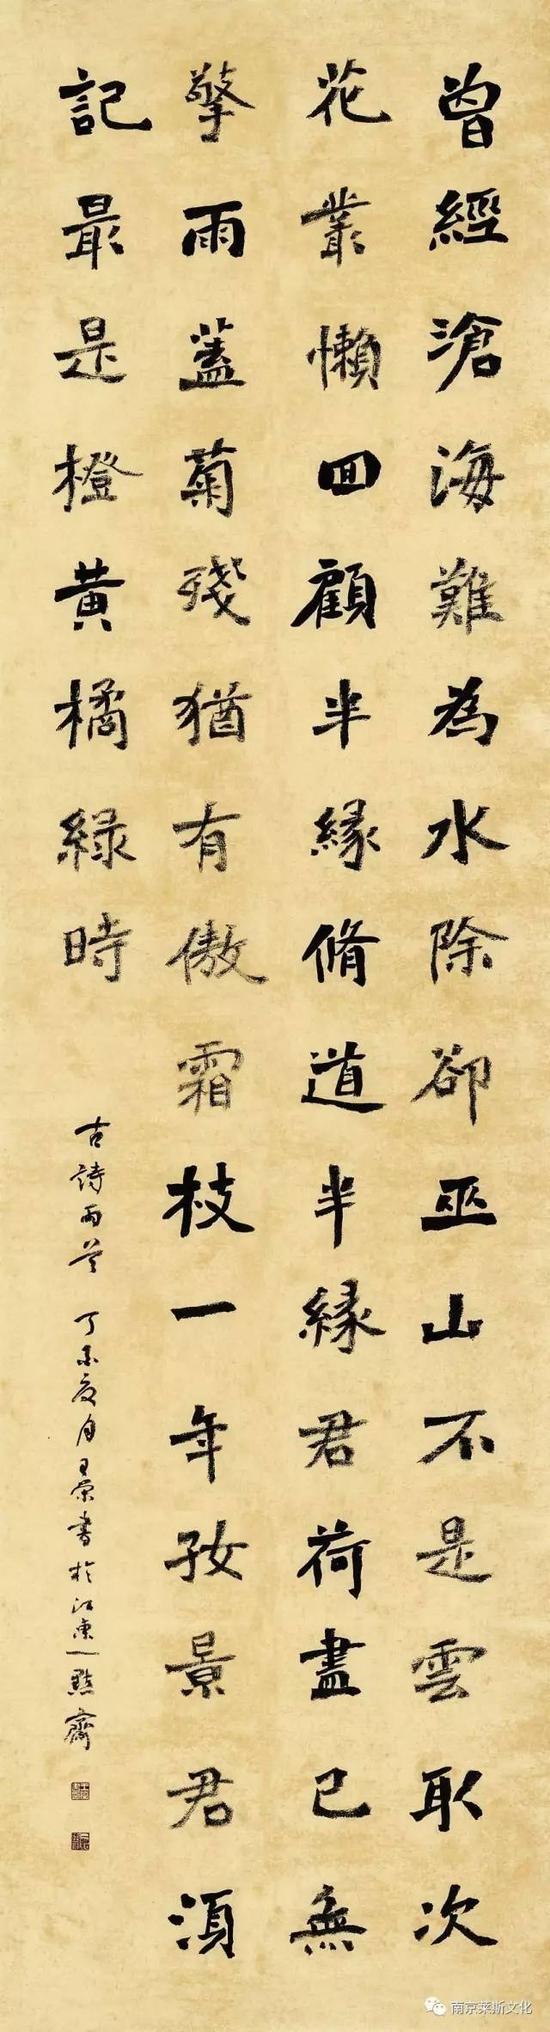 曾經滄海難為水除卻巫山不是雲取次
花叢懶回顧半緣脩道半緣君荷盡已無
擎雨蓋菊殘猶有傲霜枝一年好景君須
記最是橙黃橘綠時
古詩兩首 丁未夏月王書於江東一點齋
南京莱斯文化